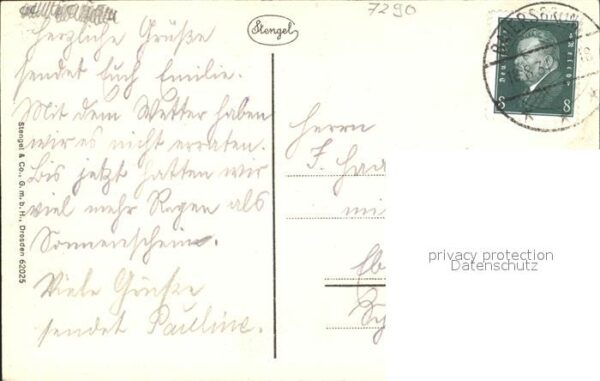 7290
Herzliche Grüße
sendet Euch Emilie.
Mit dem Wetter haben
wir es nicht erraten.
Bis jetzt hatten wir
viel mehr Regen als
Sonnenschein.
Viele Grüße
sendet Pauline.
Stengel
Stengel & Co., G. m. b. H., Dresden 62025
Herrn
F.
8 8
privacy protection
Datenschutz